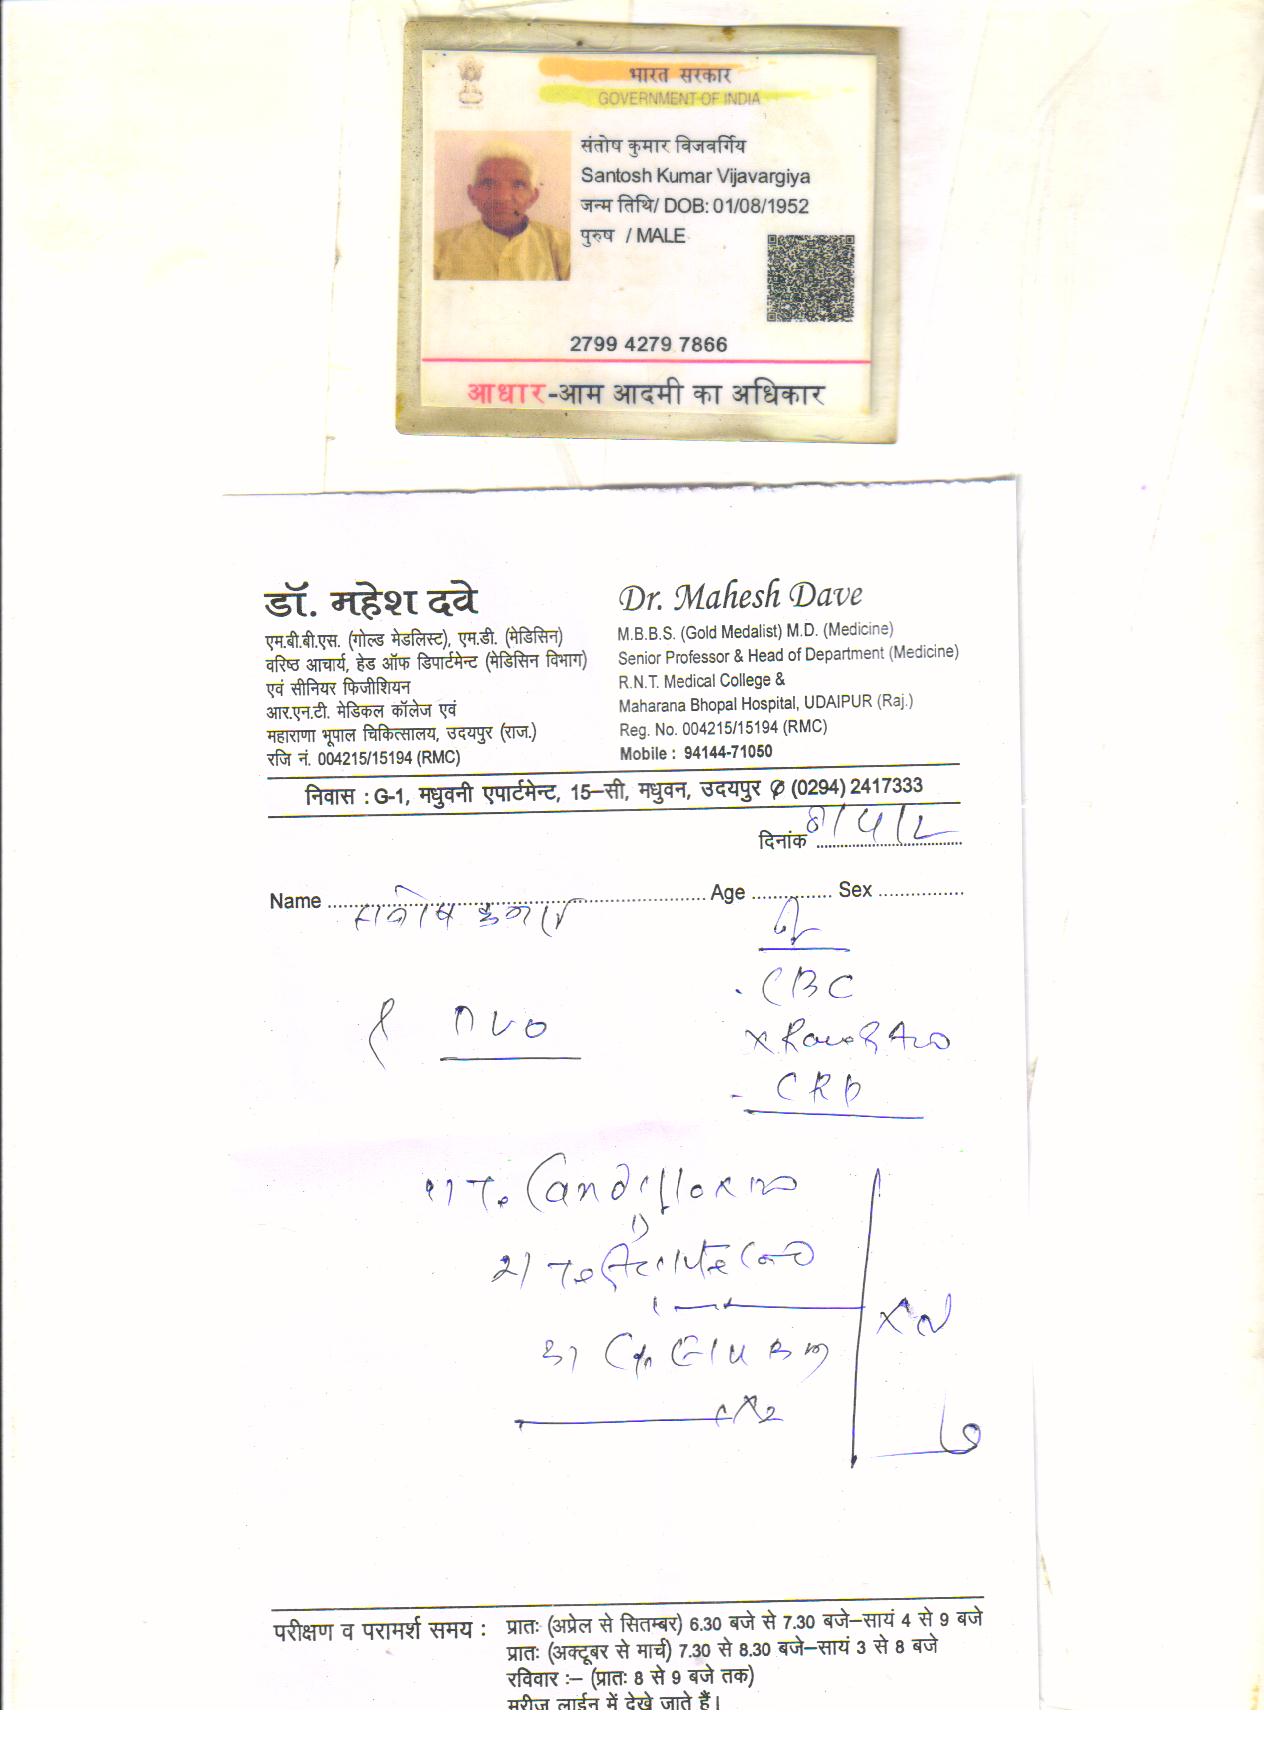 भारत सरकार
GOVERNMENT OF INDIA
संतोष कुमार विजवर्गिय
Santosh Kumar Vijavargiya
जन्म तिथि/ DOB: 01/08/1952
पुरुष / MALE
2799 4279 7866
आधार-आम आदमी का अधिकार
डॉ. महेश दवे
एम.बी.बी.एस. (गोल्ड मेडलिस्ट), एम.डी. (मेडिसिन)
वरिष्ठ आचार्य, हेड ऑफ डिपार्टमेन्ट (मेडिसिन विभाग)
एवं सीनियर फिजीशियन
आर.एन.टी. मेडिकल कॉलेज एवं
महाराणा भूपाल चिकित्सालय, उदयपुर (राज.)
रजि नं. 004215/15194 (RMC)
Dr. Mahesh Dave
M.B.B.S. (Gold Medalist) M.D. (Medicine)
Senior Professor & Head of Department (Medicine)
R.N.T. Medical College &
Maharana Bhopal Hospital, UDAIPUR (Raj.)
Reg. No. 004215/15194 (RMC)
Mobile : 94144-71050
निवास : G-1, मधुवनी एपार्टमेन्ट, 15–सी, मधुवन, उदयपुर ✆ (0294) 2417333
दिनांक
Name Age Sex
संतोष कुमार
CBC
1) T.
2)
3)
परीक्षण व परामर्श समय : प्रातः (अप्रेल से सितम्बर) 6.30 बजे से 7.30 बजे–सायं 4 से 9 बजे
प्रातः (अक्टूबर से मार्च) 7.30 से 8.30 बजे–सायं 3 से 8 बजे
रविवार :– (प्रातः 8 से 9 बजे तक)
मरीज लाईन में देखे जाते हैं।